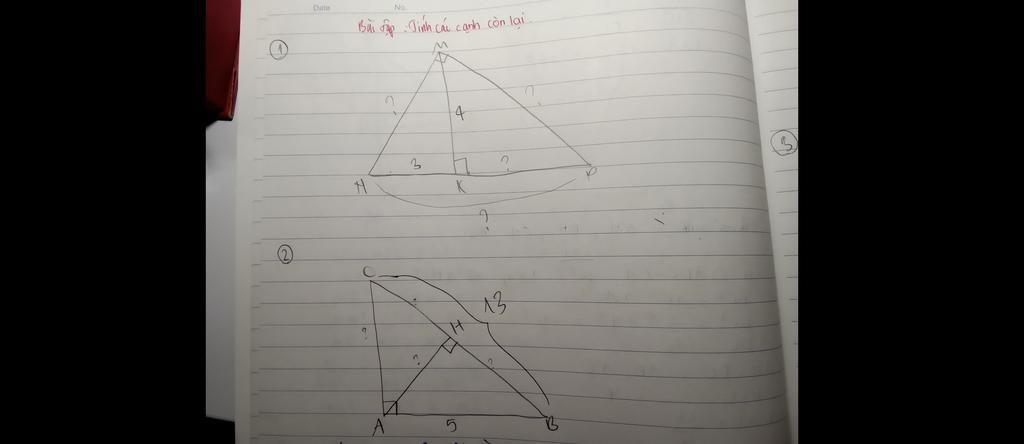 Date No.
Bài tập : Tính các cạnh còn lại.
①
M
? 4 ?
3 ?
N K P
?
②
C
13
? ? H
? ?
A 5 B
③